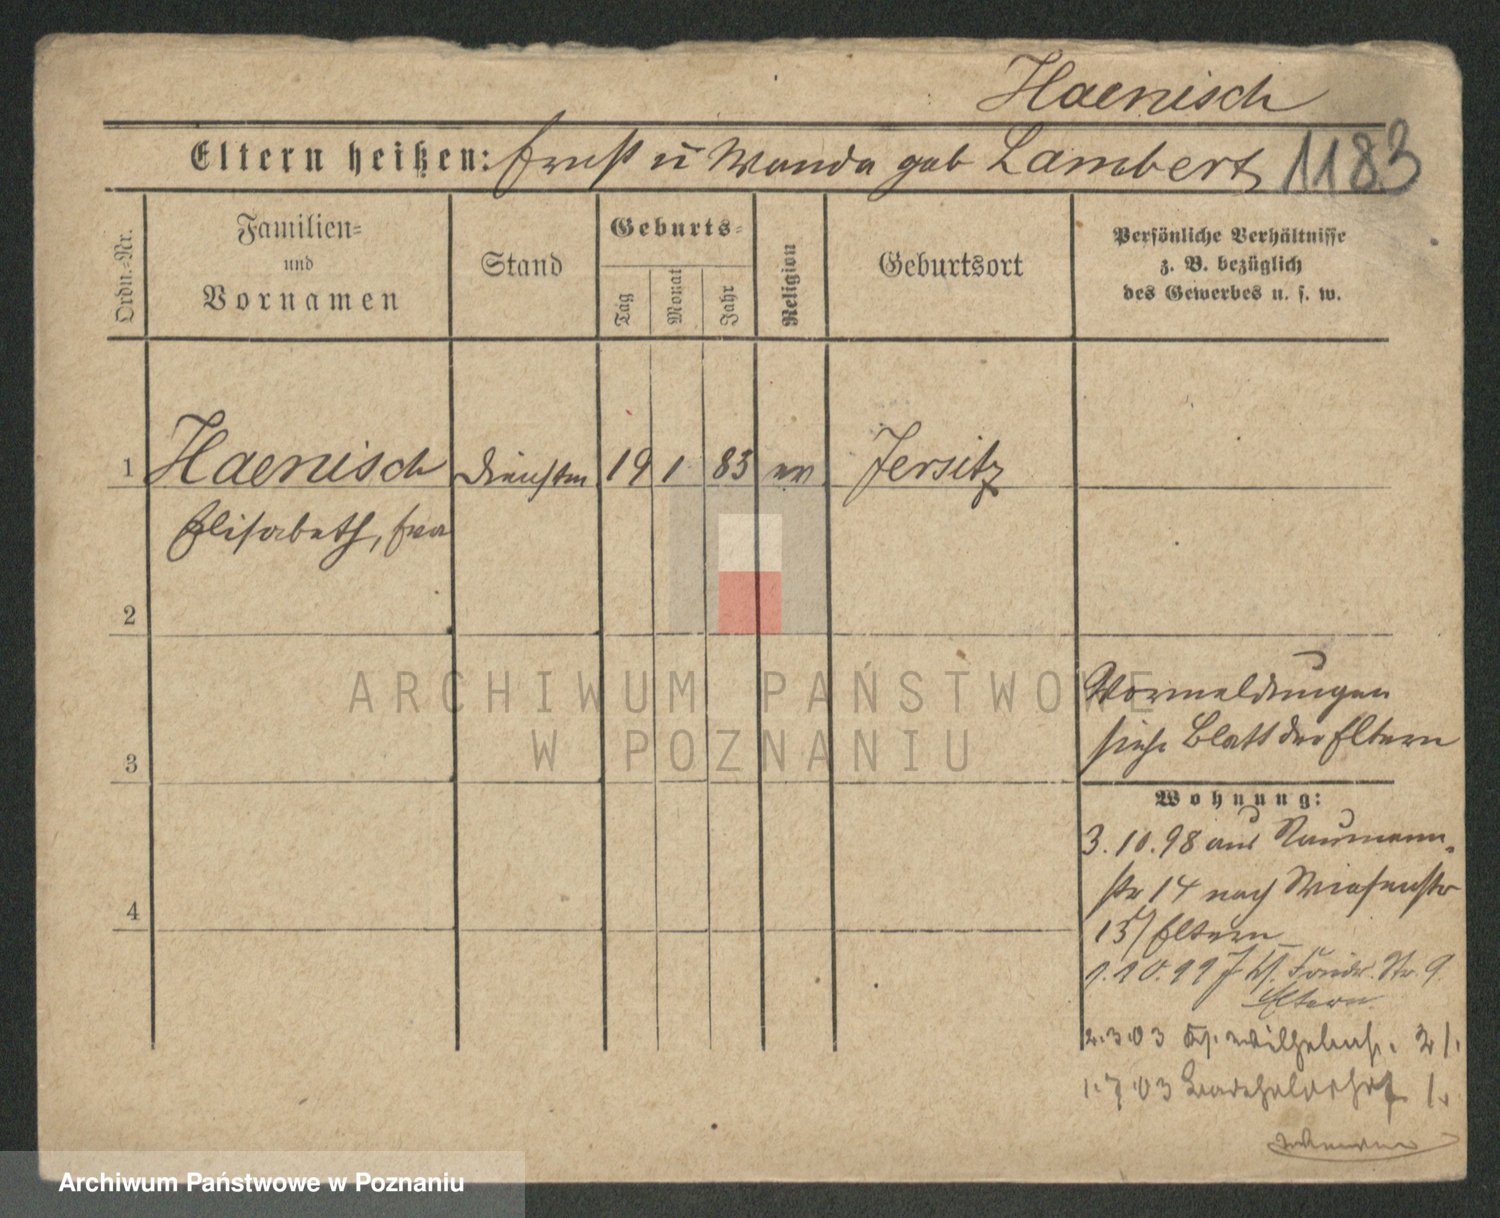 Haenisch
Eltern heißen: Ernst u Wanda geb Lambert 1183
Ordn.-Nr.
Familien-
und
Vornamen
Stand
Geburts-
Tag
Monat
Jahr
Religion
Geburtsort
Persönliche Verhältnisse
z. B. bezüglich
des Gewerbes u. s. w.
1 Haenisch 19 1 83 ev Jersitz
Elisabeth, Eva
2
ARCHIWUM PAŃSTWOWE
W POZNANIU
Vormeldungen
siehe Blatt der Eltern
3
Wohnung:
3.10.98 aus Naumann-
str 14 nach Wiesenstr
4
15/ Eltern
1.10.99 Str. 9
Eltern
2.3.03
1.7.03
Archiwum Państwowe w Poznaniu